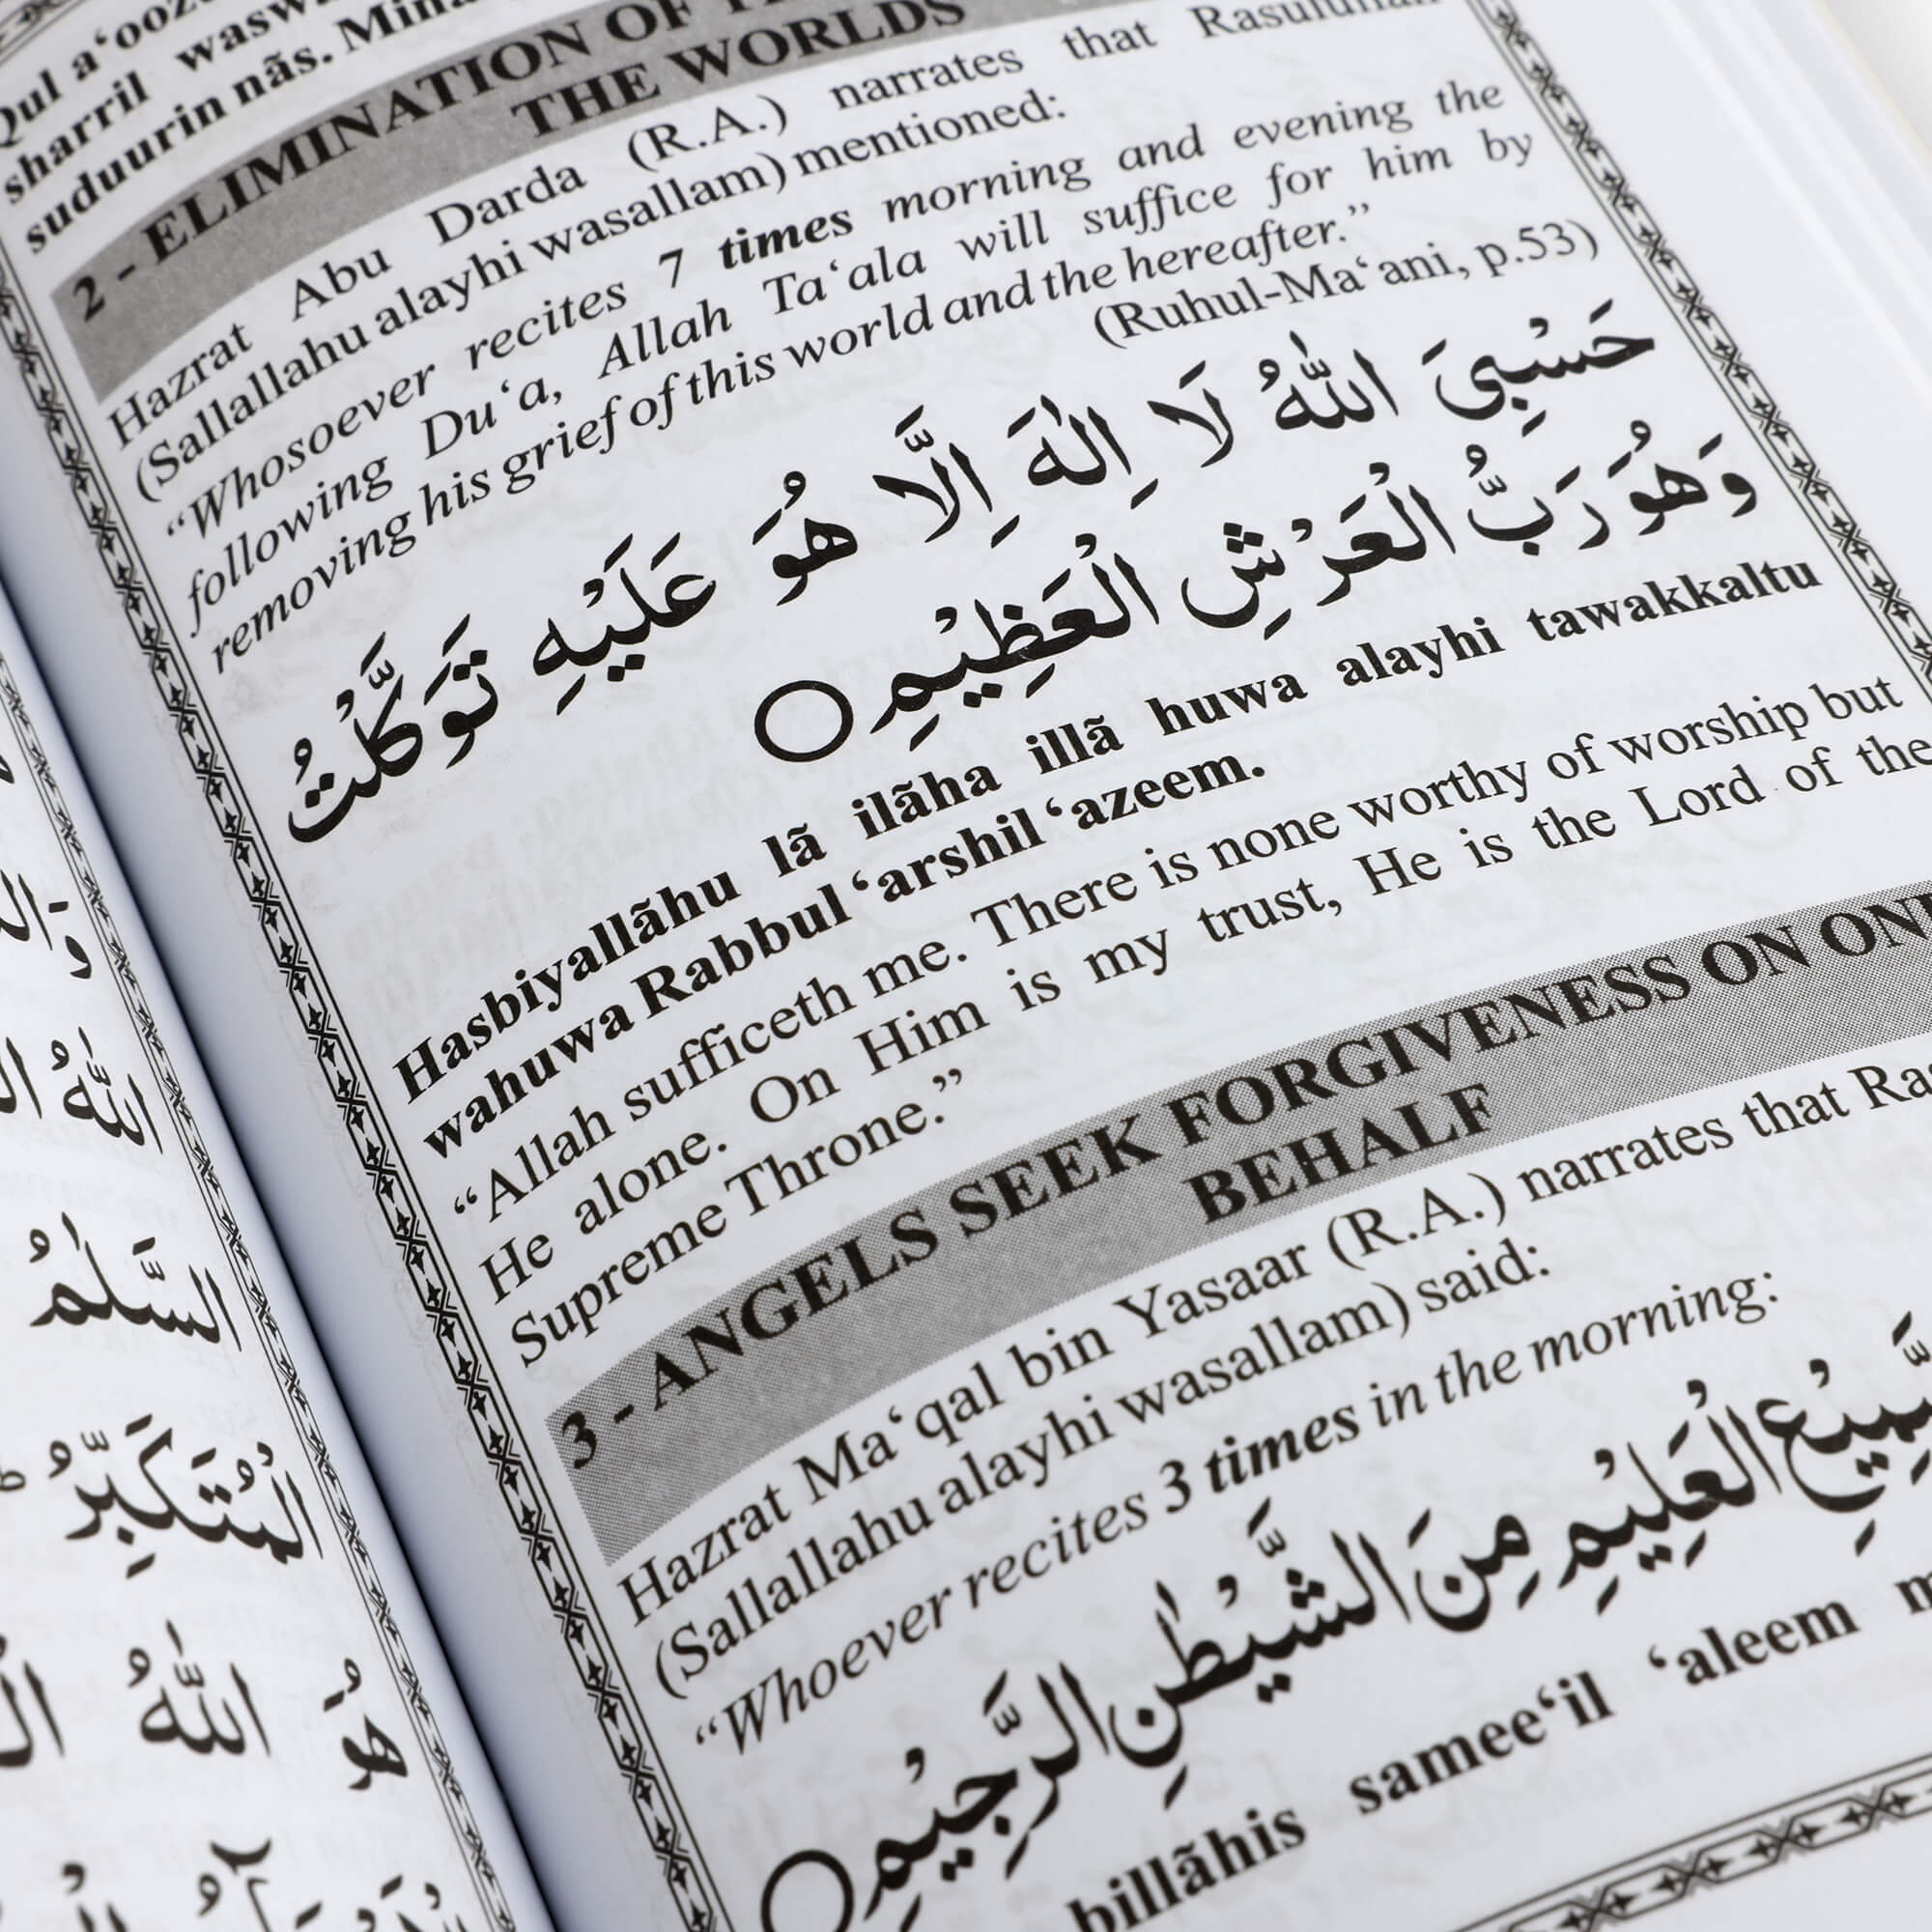 Qul a‘ooz
sharril
suduurin nãs.
2 - ELIMINATION OF
THE WORLDS
Hazrat Abu Darda (R.A.) narrates that Rasulullah
(Sallallahu alayhi wasallam) mentioned:
“Whosoever recites 7 times morning and evening the
following Du‘a, Allah Ta‘ala will suffice for him by
removing his grief of this world and the hereafter.”
(Ruhul-Ma‘ani, p.53)
حَسْبِىَ اللّٰهُ لَا اِلٰهَ اِلَّا هُوَ عَلَيْهِ تَوَكَّلْتُ
وَهُوَ رَبُّ الْعَرْشِ الْعَظِيْمِ
Hasbiyallãhu lã ilãha illã huwa alayhi tawakkaltu
wahuwa Rabbul ‘arshil ‘azeem.
“Allah sufficeth me. There is none worthy of worship but
He alone. On Him is my trust, He is the Lord of the
Supreme Throne.”
3 - ANGELS SEEK FORGIVENESS ON
BEHALF
Hazrat Ma‘qal bin Yasaar (R.A.) narrates that
(Sallallahu alayhi wasallam) said:
“Whoever recites 3 times in the morning:
الْعَلِيْمِ مِنَ الشَّيْطٰنِ الرَّجِيْمِ
billãhis samee‘il ‘aleem
اللّٰهُ
السَّلٰمُ
الْمُتَكَبِّرُ
هُوَ اللّٰهُ